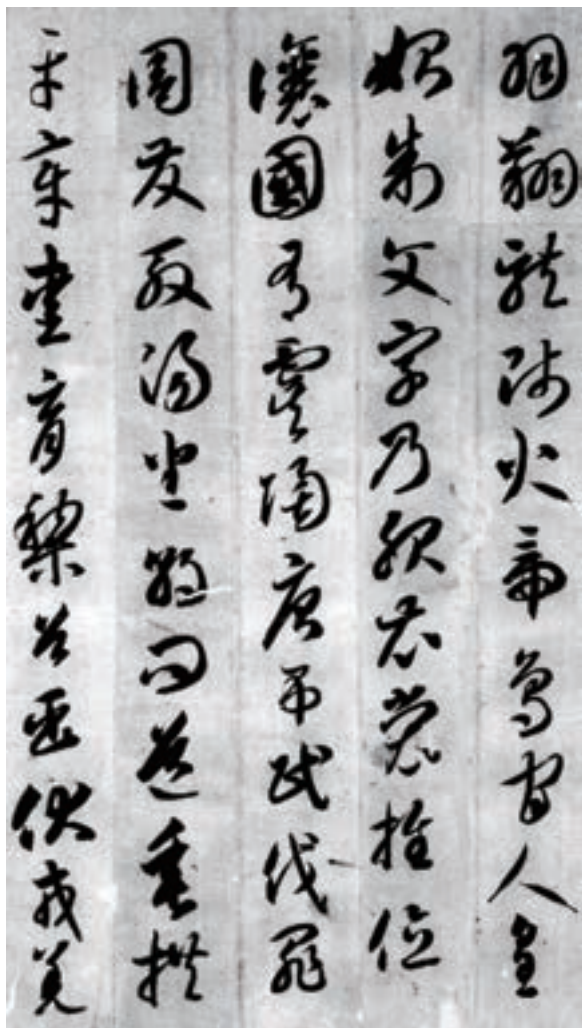 羽翔龍師火帝鳥官人皇
始制文字乃服衣裳推位
讓國有虞陶唐弔民伐罪
周發殷湯坐朝問道垂拱
平章愛育黎首臣伏戎羌